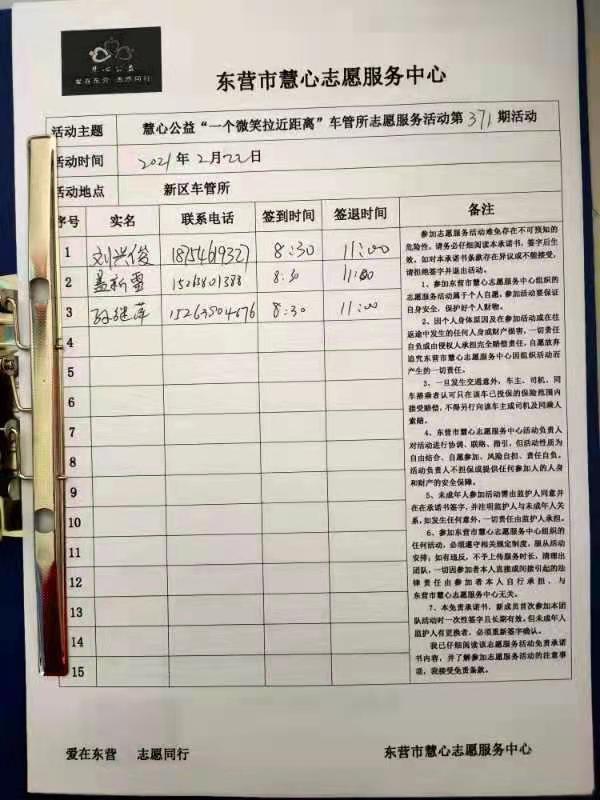 慧心公益
爱在东营 志愿同行
东营市慧心志愿服务中心
活动主题 慧心公益“一个微笑拉近距离”车管所志愿服务活动第371期活动
活动时间 2021年2月22日
活动地点 新区车管所
序号 实名 联系电话 签到时间 签退时间 备注
1 刘兴俊 18754619327 8:30 11:00
2 孟新雷 15263801388 8:30 11:00
3 孙继萍 15263804676 8:30 11:00
4
5
6
7
8
9
10
11
12
13
14
15
参加志愿服务活动难免存在不可预知的
危险性,请务必仔细阅读本承诺书,签字后生
效。如对本承诺书条款存在异议或不能接受,
请拒绝签字并退出活动。
1、参加东营市慧心志愿服务中心组织的
志愿服务活动属于个人自愿,参加活动要保证
自身安全,保护好个人财物。
2、因个人身体原因及在参加活动或在往
返途中发生的任何人身或财产损害,一切责任
自负或由侵权人承担完全赔偿责任,自愿放弃
追究东营市慧心志愿服务中心因组织活动而
产生的一切责任。
3、一旦发生交通意外,车主、司机、同
车搭乘者认可只在该车已投保的保险范围内
接受赔偿,不得另行向该车主或司机及同乘人
索赔。
4、东营市慧心志愿服务中心活动负责人
对活动进行协调、联络、指引,但活动性质为
自由结合、自愿参加、风险自担、责任自负。
活动负责人不担保或提供任何参加人的人身
和财产的安全保障。
5、未成年人参加活动需由监护人同意并
在在承诺书签字,并注明监护人与未成年人关
系,如发生任何意外,一切责任由监护人承担。
6、参加东营市慧心志愿服务中心组织的
任何活动,必须遵守相关规定制度,服从活动
安排;如有违反,不予上传服务时长,清理出
团队,一切因参加者本人直接或间接引起的法
律责任由参加者本人自行承担、与
东营市慧心志愿服务中心无关。
7、本免责承诺书,新成员首次参加本团
队活动时一次性签字且长期有效。但未成年人
监护人有更换者,必须重新签字确认。
我已仔细阅读该志愿服务活动免责承诺
书内容,并了解参加志愿服务活动的注意事
项,我接受免责条款。
爱在东营 志愿同行 东营市慧心志愿服务中心